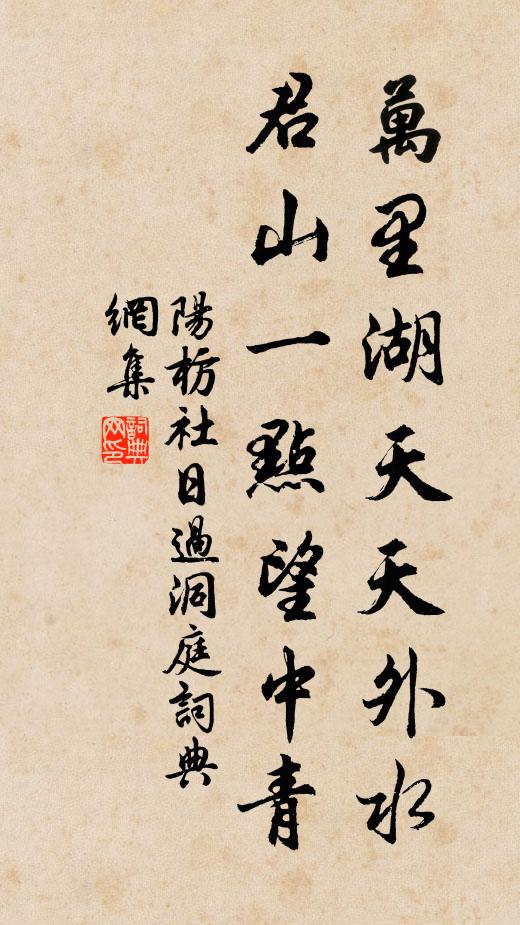 萬里湖天天外水
君山一點望中青
陽枋社日過洞庭詞典
網集
詞典
网印